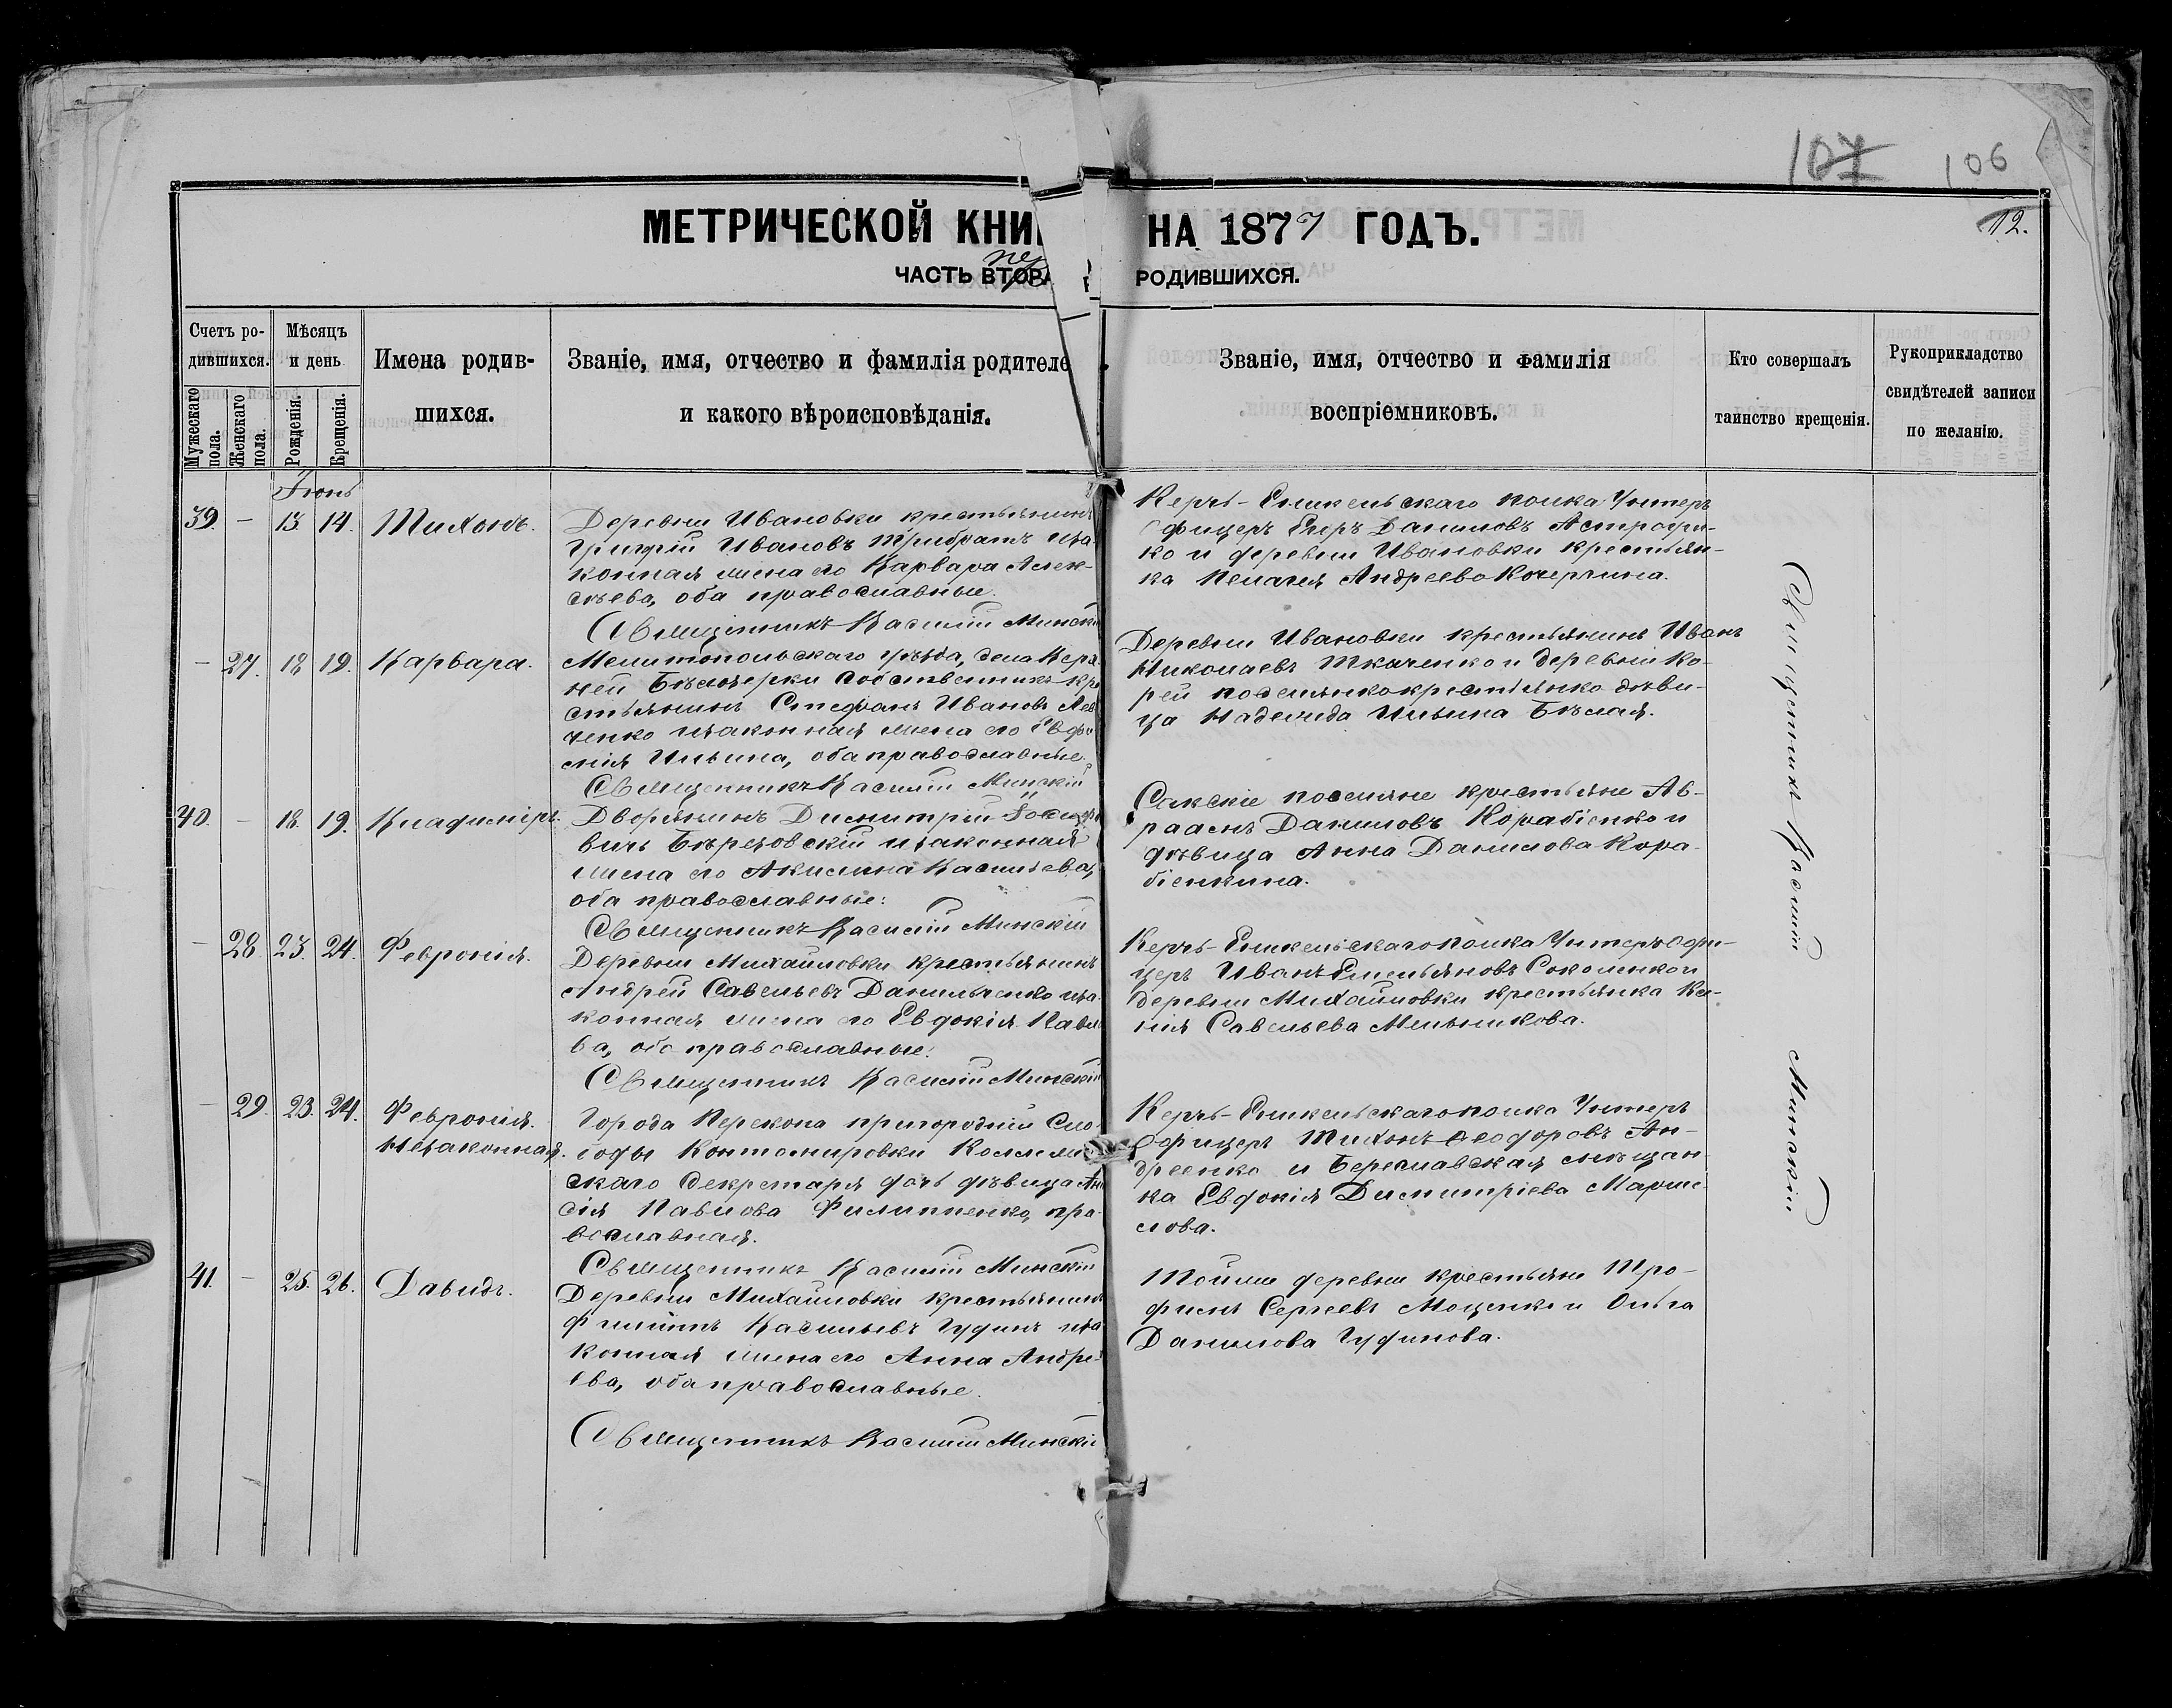 107 106
МЕТРИЧЕСКОЙ КНИ НА 1877 ГОДЪ.
12.
ЧАСТЬ ВТОРА РОДИВШИХСЯ.
пер
Счетъ ро-
дившихся.
Мужескаго пола.
Женскаго пола.
Мѣсяцъ
и день
Рожденія.
Крещенія.
Имена родив-
шихся.
Званіе, имя, отчество и фамилія родителе
и какого вѣроисповѣданія.
Званіе, имя, отчество и фамилія
воспріемниковъ.
Кто совершалъ
таинство крещенія.
Рукоприкладство
свидѣтелей записи
по желанію.
Іюнь
39. — 13 14. Тихонъ.
Деревни Ивановки крестьянинъ
Григрій Ивановъ Трибратъ иза-
конная жена его Варвара Алек-
сѣева, оба православные.
Священникъ Василій Минскій
Керчь-Еникельскаго полка Унтеръ
Офицеръ Егоръ Даниловъ
ко и деревни Ивановки крестьян-
ка Пелагея Андреева Кочергина.
— 27. 18 19. Варвара.
Мелитопольскаго уѣзда, села Верх
ней Бѣлозерки собственникъ кре
стьянинъ Стефанъ Ивановъ Лев
ченко изаконная жена его Евфи
мія Ильина, оба православные.
Священникъ Василій Минскій
Деревни Ивановки крестьянинъ Иванъ
Николаевъ Ткаченко и деревни Ко-
рей поселянко крестьянко дѣви-
ца Надежда Ильина Бѣлая.
40. — 18. 19. Владиміръ.
Дворянинъ Димитрій Іосифо
вичъ Бѣрезовскій изаконная
жена его Акилина Васильева,
оба православные:
Священникъ Василій Минскій
Сакскіе поселяне крестьяне Ав-
раамъ Даниловъ Корабіенко и
дѣвица Анна Данилова Кора-
біенкина.
— 28. 23. 24. Февронія.
Деревни Михайловки крестьянинъ
Андрей Савельевъ Данильченко иза-
конная жена его Евдокія Павло
ва, оба православные.
Священникъ Василій Минскій
Керчь-Еникельскаго полка Унтеръ Офи-
церъ Иванъ Емельяновъ Соколенко и
деревни Михайловки крестьянка Ксе-
нія Савельева Мельникова.
— 29. 23. 24. Февронія.
Незаконная.
Города Перекопа пригородній Сло-
боды Контомировки Коллежи
скаго Секретаря дочь дѣвица Ана
сія Павлова Филиппенко, пра-
вославная.
Священникъ Василій Минскій
Керчь-Еникельскаго полка Унтеръ
Офицеръ Тихонъ Ѳеодоровъ Ан-
дреенко и Береславская мѣщан-
ка Евдокія Димитріева
слова.
41. — 25. 26. Давидъ.
Деревни Михайловки крестьянинъ
Филиппъ Васильевъ Гудинъ иза
конная жена его Анна Андре-
ева, оба православные.
Священникъ Василій Минскій
Тойже деревни крестьяне Тро-
фимъ Сергеевъ Моценко и Ольга
Данилова Гудинова.
Священникъ Василій Минскій